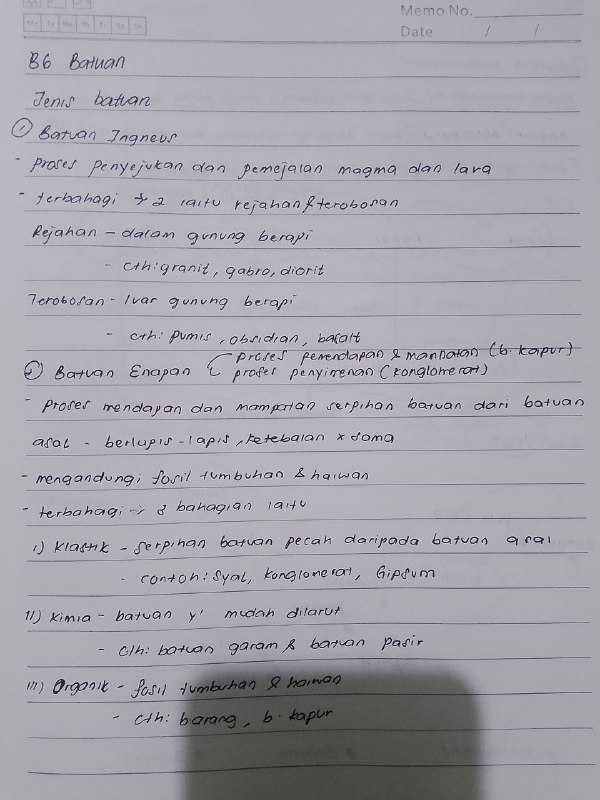 Memo No.
Mo Tu We Th Fr Sa Su
Date / /
B6 Batuan
Jenis batuan
① Batuan Ingneus
- proses penyejukan dan pemejalan magma dan lava
- terbahagi → 2 iaitu rejahan & terobosan
Rejahan - dalam gunung berapi
- cth: granit, gabro, diorit
Terobosan - luar gunung berapi
- cth: pumis, obsidian, basalt
proses pemendapan & manpatan (b. kapur)
② Batuan Enapan proses penyimenan (konglomerat)
- proses mendapan dan mampatan serpihan batuan dari batuan
asal - berlapis-lapis, ketebalan x sama
- mengandungi fosil tumbuhan & haiwan
- terbahagi → 3 bahagian iaitu
i) Klastik - serpihan batuan pecah daripada batuan asal
- contoh: syal, konglomerat, Gipsum
ii) Kimia - batuan y' mudah dilarut
- cth: batuan garam & batuan pasir
iii) Organik - fosil tumbuhan & haiwan
- cth: barang, b. kapur